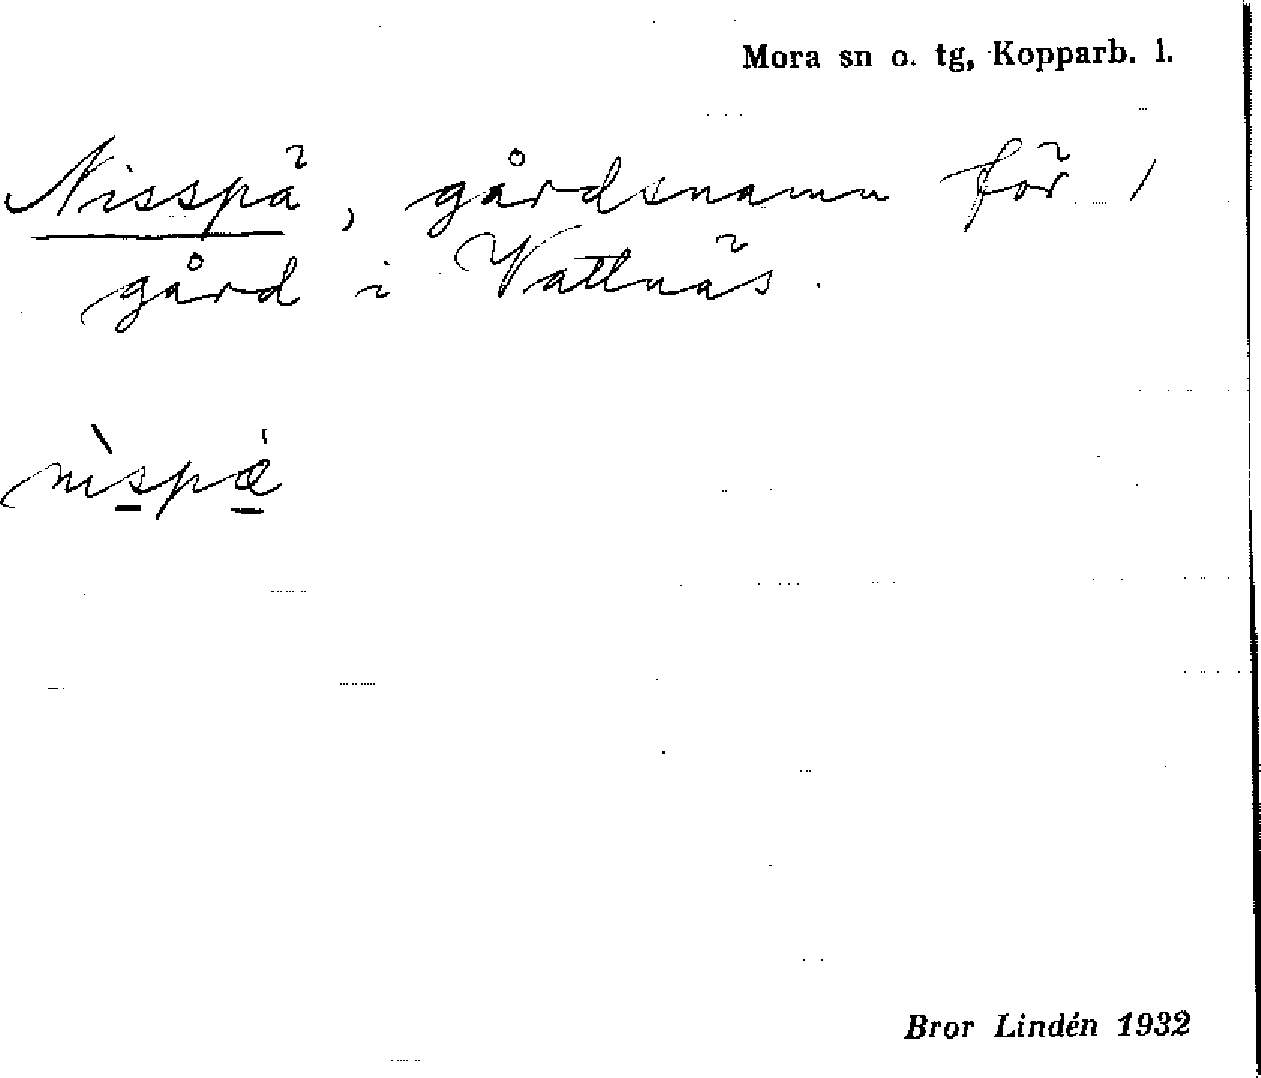 Mora sn o. tg, Kopparb. l.
Nisspä, gårdsnamn för 1
gård i Vattnäs.
nìspǽ
Bror Lindén 1932